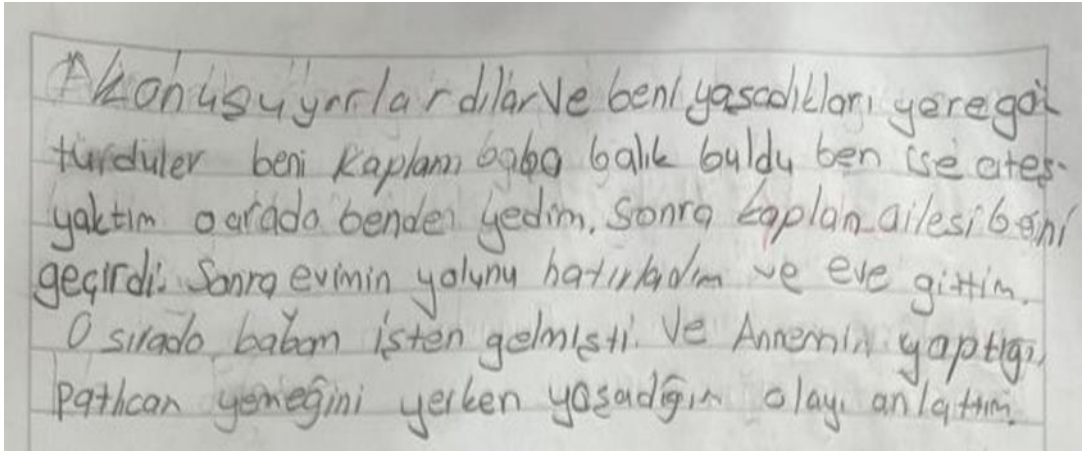 Akonuşuyorlardılar Ve beni yasadıkları yere gö
türdüler beni kaplanı baba balık buldu ben ise ateş-
yaktım o arada bende yedim, Sonra kaplan ailesi beni
geçirdi. Sonra evimin yolunu hatırladım ve eve gittim.
O sırada babam işten gelmişti. Ve Annemin yaptığı
patlıcan yemeğini yerken yaşadığım olayı anlattım.